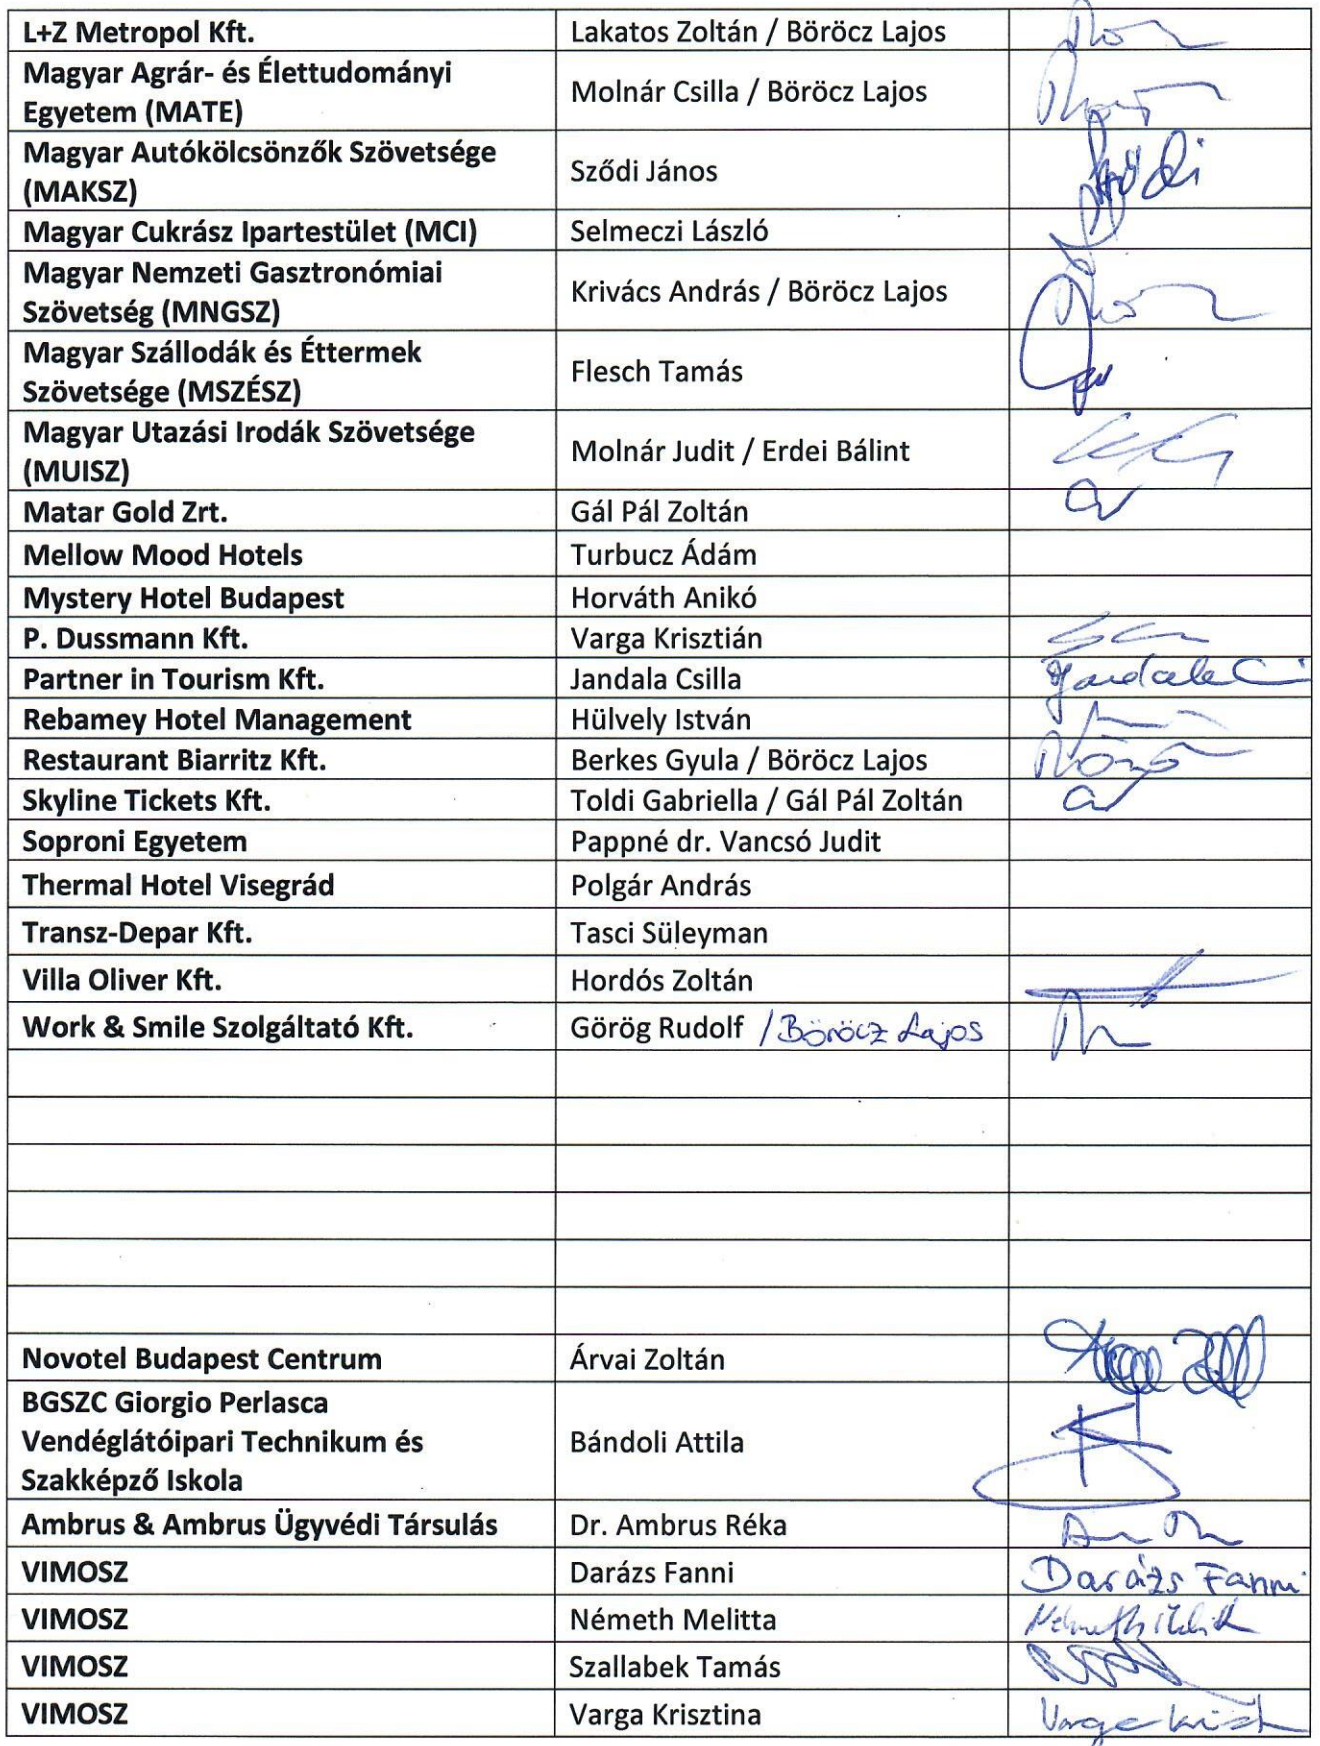 L+Z Metropol Kft. Lakatos Zoltán / Böröcz Lajos
Magyar Agrár- és Élettudományi
Egyetem (MATE) Molnár Csilla / Böröcz Lajos
Magyar Autókölcsönzők Szövetsége
(MAKSZ) Sződi János
Magyar Cukrász Ipartestület (MCI) Selmeczi László
Magyar Nemzeti Gasztronómiai
Szövetség (MNGSZ) Krivács András / Böröcz Lajos
Magyar Szállodák és Éttermek
Szövetsége (MSZÉSZ) Flesch Tamás
Magyar Utazási Irodák Szövetsége
(MUISZ) Molnár Judit / Erdei Bálint
Matar Gold Zrt. Gál Pál Zoltán
Mellow Mood Hotels Turbucz Ádám
Mystery Hotel Budapest Horváth Anikó
P. Dussmann Kft. Varga Krisztián
Partner in Tourism Kft. Jandala Csilla
Rebamey Hotel Management Hülvely István
Restaurant Biarritz Kft. Berkes Gyula / Böröcz Lajos
Skyline Tickets Kft. Toldi Gabriella / Gál Pál Zoltán
Soproni Egyetem Pappné dr. Vancsó Judit
Thermal Hotel Visegrád Polgár András
Transz-Depar Kft. Tasci Süleyman
Villa Oliver Kft. Hordós Zoltán
Work & Smile Szolgáltató Kft. Görög Rudolf / Böröcz Lajos
Novotel Budapest Centrum Árvai Zoltán
BGSZC Giorgio Perlasca
Vendéglátóipari Technikum és Bándoli Attila
Szakképző Iskola
Ambrus & Ambrus Ügyvédi Társulás Dr. Ambrus Réka
VIMOSZ Darázs Fanni Darázs Fanni
VIMOSZ Németh Melitta
VIMOSZ Szallabek Tamás
VIMOSZ Varga Krisztina